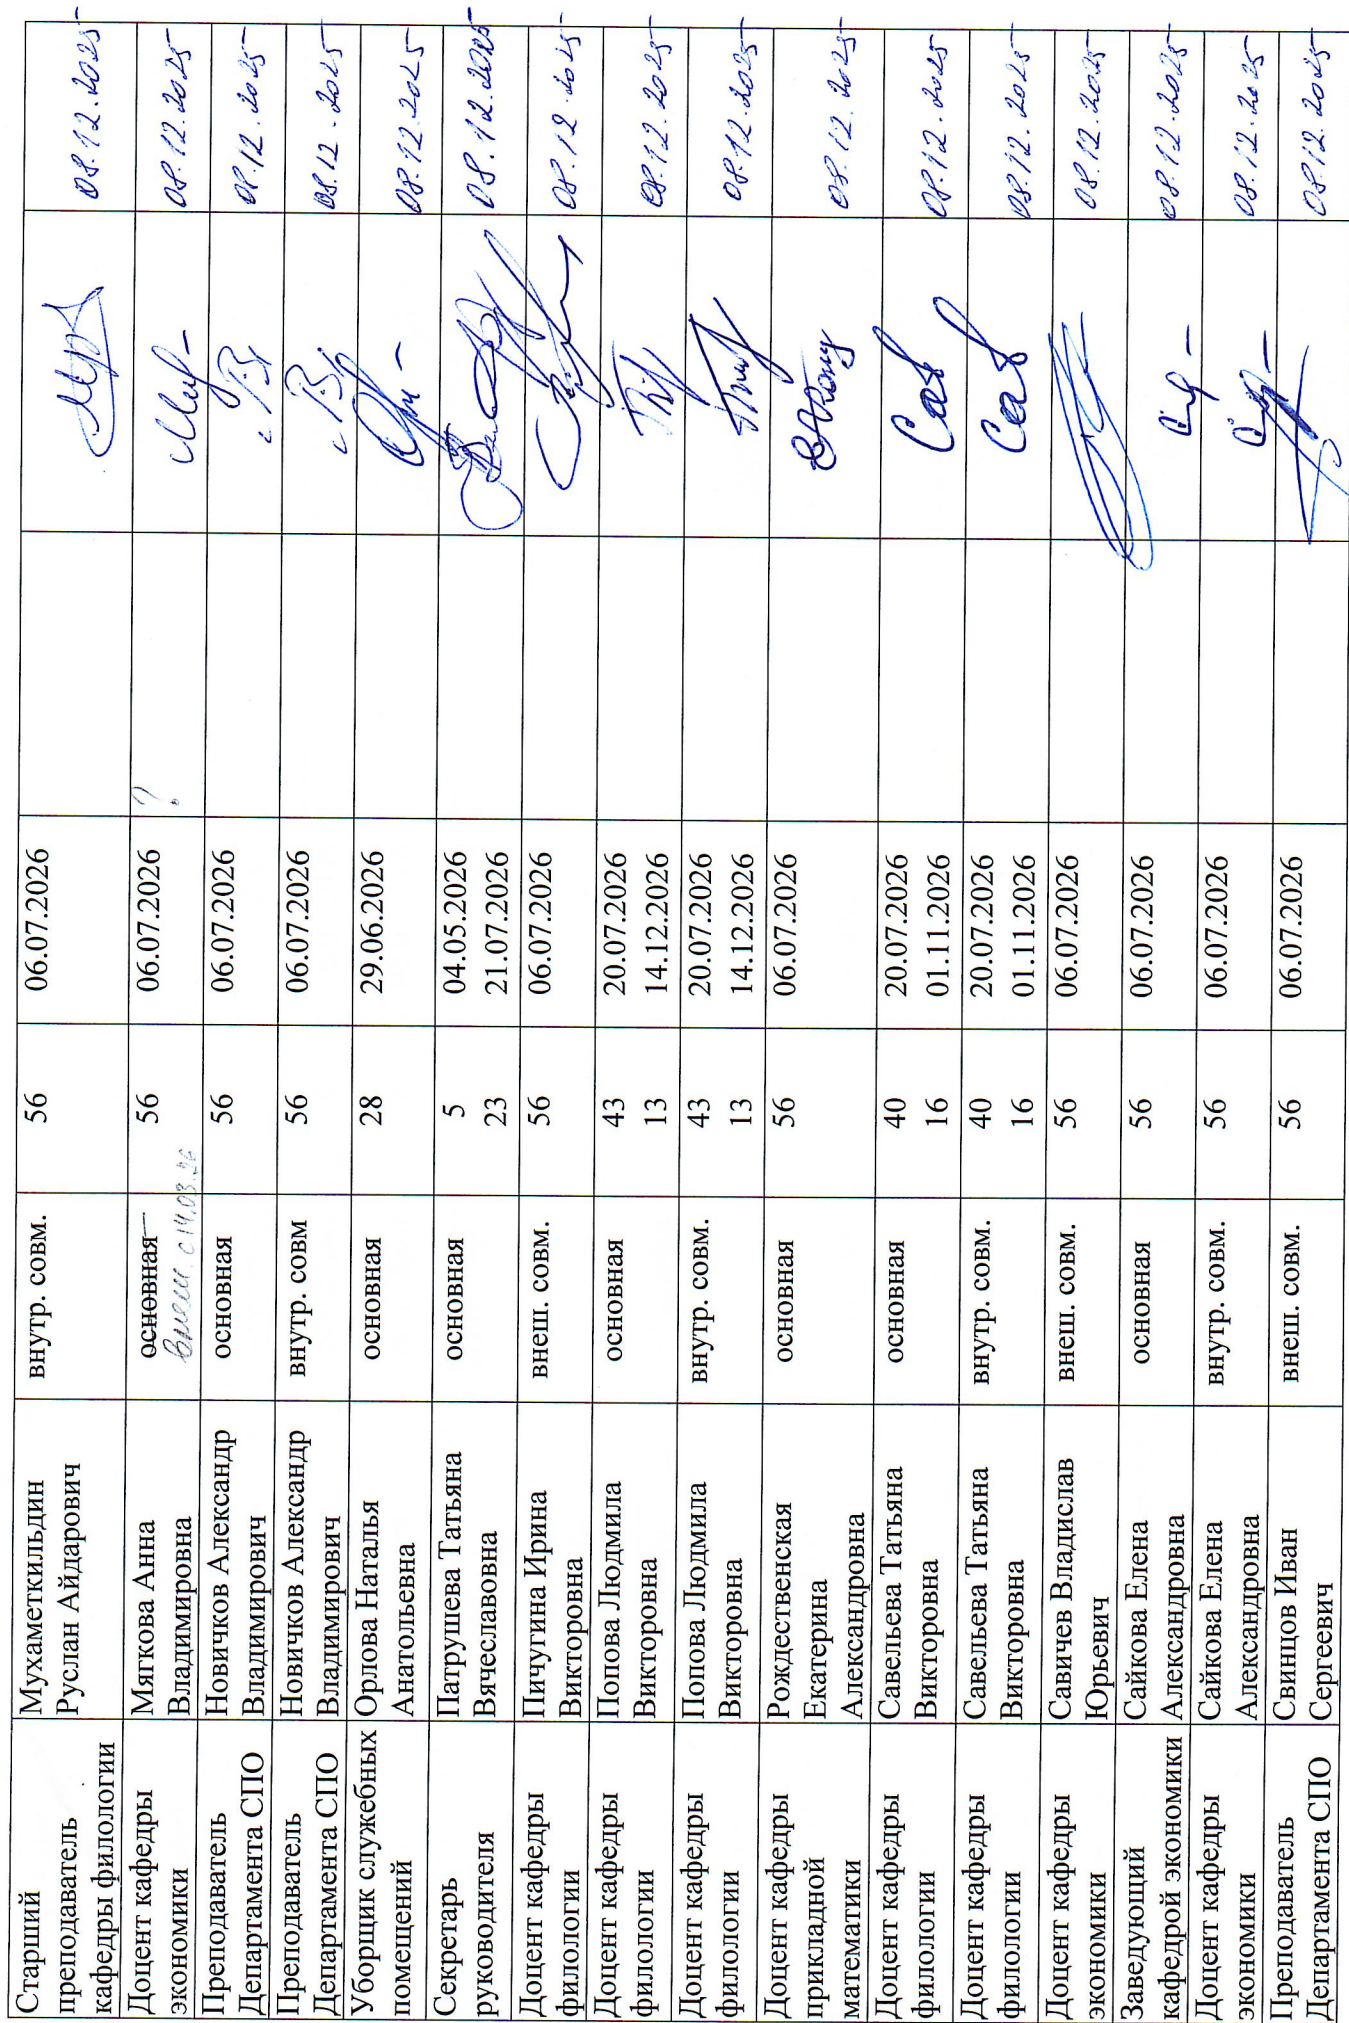 Старший
преподаватель
кафедры филологии
Мухаметкильдин
Руслан Айдарович
внутр. совм.
56
06.07.2026
08.12.2025
Доцент кафедры
экономики
Мягкова Анна
Владимировна
основная
внеш. с 14.03.26
56
06.07.2026
?
08.12.2025
Преподаватель
Департамента СПО
Новичков Александр
Владимирович
основная
56
06.07.2026
08.12.2025
Преподаватель
Департамента СПО
Новичков Александр
Владимирович
внутр. совм
56
06.07.2026
08.12.2025
Уборщик служебных
помещений
Орлова Наталья
Анатольевна
основная
28
29.06.2026
08.12.2025
Секретарь
руководителя
Патрушева Татьяна
Вячеславовна
основная
5
23
04.05.2026
21.07.2026
08.12.2025
Доцент кафедры
филологии
Пичугина Ирина
Викторовна
внеш. совм.
56
06.07.2026
08.12.2025
Доцент кафедры
филологии
Попова Людмила
Викторовна
основная
43
13
20.07.2026
14.12.2026
08.12.2025
Доцент кафедры
филологии
Попова Людмила
Викторовна
внутр. совм.
43
13
20.07.2026
14.12.2026
08.12.2025
Доцент кафедры
прикладной
математики
Рождественская
Екатерина
Александровна
основная
56
06.07.2026
08.12.2025
Доцент кафедры
филологии
Савельева Татьяна
Викторовна
основная
40
16
20.07.2026
01.11.2026
Сав
08.12.2025
Доцент кафедры
филологии
Савельева Татьяна
Викторовна
внутр. совм.
40
16
20.07.2026
01.11.2026
Сав
08.12.2025
Доцент кафедры
экономики
Савичев Владислав
Юрьевич
внеш. совм.
56
06.07.2026
08.12.2025
Заведующий
кафедрой экономики
Сайкова Елена
Александровна
основная
56
06.07.2026
08.12.2025
Доцент кафедры
экономики
Сайкова Елена
Александровна
внутр. совм.
56
06.07.2026
08.12.2025
Преподаватель
Департамента СПО
Свинцов Иван
Сергеевич
внеш. совм.
56
06.07.2026
08.12.2025